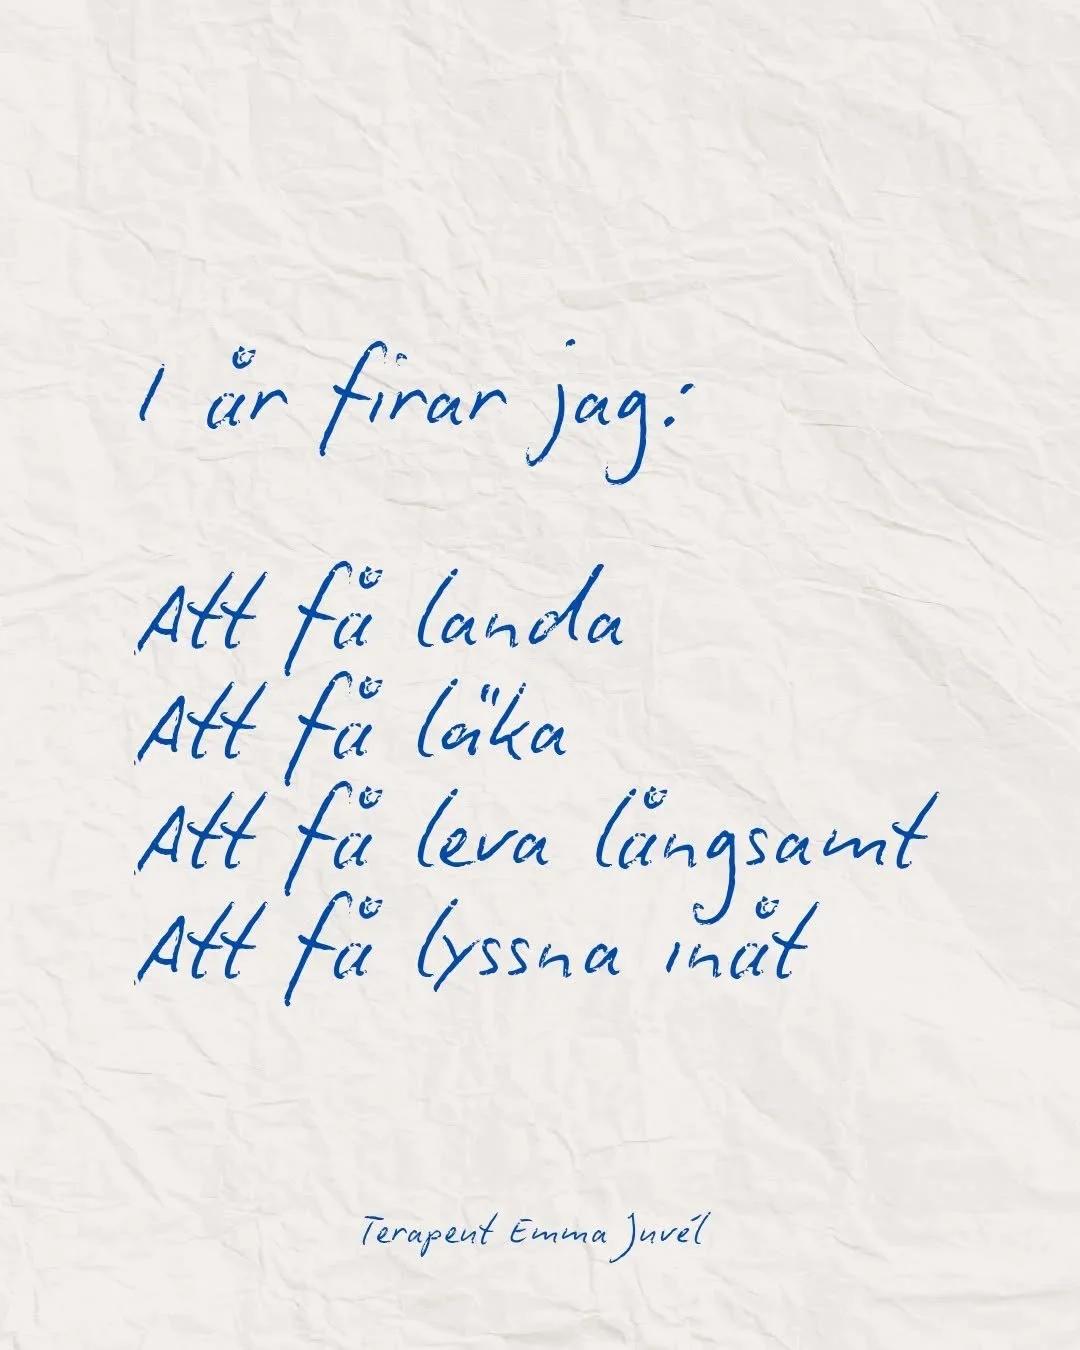 I år firar jag:
Att få landa
Att få läka
Att få leva långsamt
Att få lyssna inåt
Terapeut Emma Juvél